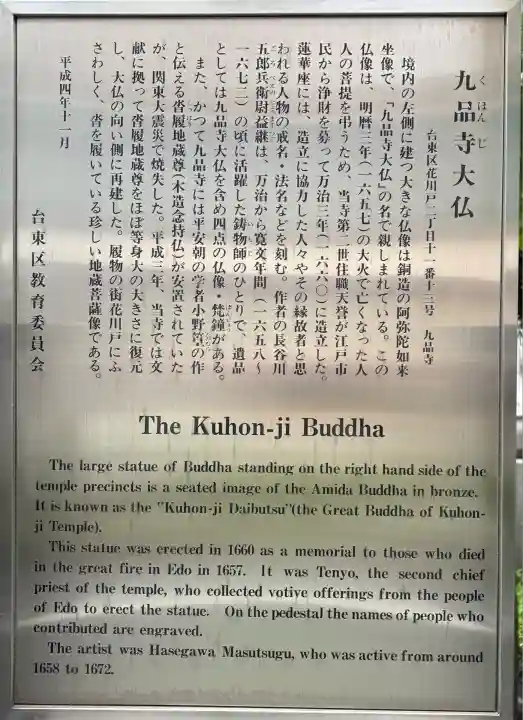 九品寺大仏
くほんじ
台東区花川戸二丁目十一番十三号　九品寺
境内の左側に建つ大きな仏像は銅造の阿弥陀如来
坐像で、「九品寺大仏」の名で親しまれている。この
仏像は、明暦三年(一六五七)の大火で亡くなった人
人の菩提を弔うため、当寺第二世住職天誉が江戸市
民から浄財を募って万治三年(一六六〇)に造立した。
蓮華座には、造立に協力した人々やその縁故者と思
われる人物の戒名・法名などを刻む。作者の長谷川
五郎兵衛尉益継は、万治から寛文年間(一六五八～
一六七二)の頃に活躍した鋳物師のひとりで、遺品
としては九品寺大仏を含め四点の仏像・梵鐘がある。
また、かつて九品寺には平安朝の学者小野篁の作
と伝える沓履地蔵尊(木造念持仏)が安置されていた
が、関東大震災で焼失した。平成三年、当寺では文
献に拠って沓履地蔵尊をほぼ等身大の大きさに復元
し、大仏の向い側に再建した。履物の街花川戸にふ
さわしく、沓を履いている珍しい地蔵菩薩像である。
平成四年十一月
台東区教育委員会
The Kuhon-ji Buddha
The large statue of Buddha standing on the right hand side of the
temple precincts is a seated image of the Amida Buddha in bronze.
It is known as the "Kuhon-ji Daibutsu"(the Great Buddha of Kuhon-
ji Temple).
This statue was erected in 1660 as a memorial to those who died
in the great fire in Edo in 1657. It was Tenyo, the second chief
priest of the temple, who collected votive offerings from the people
of Edo to erect the statue. On the pedestal the names of people who
contributed are engraved.
The artist was Hasegawa Masutsugu, who was active from around
1658 to 1672.